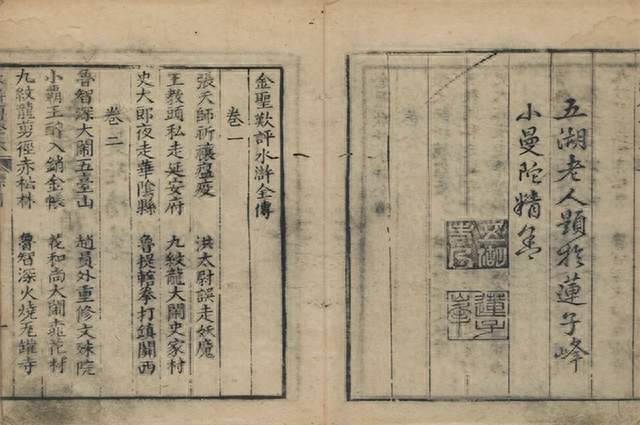 五湖老人題於蓮子峰
小曼陀精舍
金聖歎評水滸全傳
卷一
張天師祈禳瘟疫 洪太尉誤走妖魔
王教頭私走延安府 九紋龍大鬧史家村
史大郎夜走華陰縣 魯提轄拳打鎮關西
卷二
魯智深大鬧五臺山 趙員外重修文殊院
小霸王醉入銷金帳 花和尚大鬧桃花村
九紋龍剪徑赤松林 魯智深火燒瓦罐寺